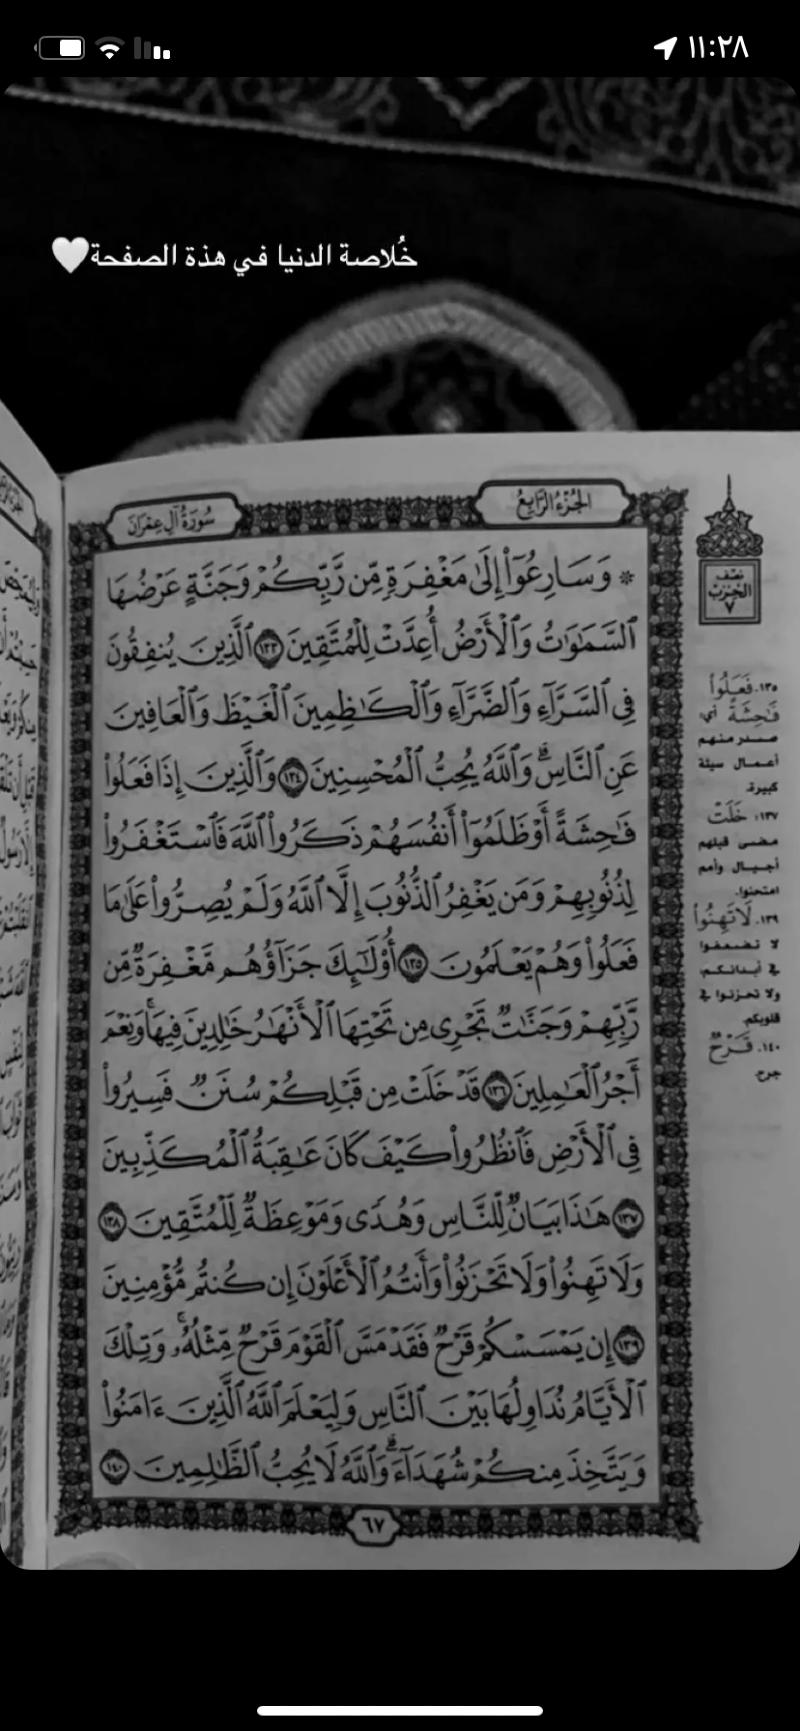 ١١:٢٨
خُلاصة الدنيا في هذة الصفحة🤍
الجُزْءُ الرَّابِعُ
سُورَةُ آلِ عِمْرَانَ
* وَسَارِعُوٓاْ إِلَىٰ مَغْفِرَةٖ مِّن رَّبِّكُمْ وَجَنَّةٍ عَرْضُهَا
ٱلسَّمَٰوَٰتُ وَٱلْأَرْضُ أُعِدَّتْ لِلْمُتَّقِينَ ١٣٣ ٱلَّذِينَ يُنفِقُونَ
فِي ٱلسَّرَّآءِ وَٱلضَّرَّآءِ وَٱلْكَٰظِمِينَ ٱلْغَيْظَ وَٱلْعَافِينَ
عَنِ ٱلنَّاسِۗ وَٱللَّهُ يُحِبُّ ٱلْمُحْسِنِينَ ١٣٤ وَٱلَّذِينَ إِذَا فَعَلُواْ
فَٰحِشَةً أَوْ ظَلَمُوٓاْ أَنفُسَهُمْ ذَكَرُواْ ٱللَّهَ فَٱسْتَغْفَرُواْ
لِذُنُوبِهِمْ وَمَن يَغْفِرُ ٱلذُّنُوبَ إِلَّا ٱللَّهُ وَلَمْ يُصِرُّواْ عَلَىٰ مَا
فَعَلُواْ وَهُمْ يَعْلَمُونَ ١٣٥ أُوْلَٰٓئِكَ جَزَآؤُهُم مَّغْفِرَةٞ مِّن
رَّبِّهِمْ وَجَنَّٰتٞ تَجْرِي مِن تَحْتِهَا ٱلْأَنْهَٰرُ خَٰلِدِينَ فِيهَاۚ وَنِعْمَ
أَجْرُ ٱلْعَٰمِلِينَ ١٣٦ قَدْ خَلَتْ مِن قَبْلِكُمْ سُنَنٞ فَسِيرُواْ
فِي ٱلْأَرْضِ فَٱنظُرُواْ كَيْفَ كَانَ عَٰقِبَةُ ٱلْمُكَذِّبِينَ
١٣٧ هَٰذَا بَيَانٞ لِّلنَّاسِ وَهُدٗى وَمَوْعِظَةٞ لِّلْمُتَّقِينَ ١٣٨
وَلَا تَهِنُواْ وَلَا تَحْزَنُواْ وَأَنتُمُ ٱلْأَعْلَوْنَ إِن كُنتُم مُّؤْمِنِينَ
١٣٩ إِن يَمْسَسْكُمْ قَرْحٞ فَقَدْ مَسَّ ٱلْقَوْمَ قَرْحٞ مِّثْلُهُۥۚ وَتِلْكَ
ٱلْأَيَّامُ نُدَاوِلُهَا بَيْنَ ٱلنَّاسِ وَلِيَعْلَمَ ٱللَّهُ ٱلَّذِينَ ءَامَنُواْ
وَيَتَّخِذَ مِنكُمْ شُهَدَآءَۗ وَٱللَّهُ لَا يُحِبُّ ٱلظَّٰلِمِينَ ١٤٠
٦٧
نصف
الحزب
٧
١٣٥. فَعَلُواْ
فَٰحِشَةً أي:
صدر منهم
أعمال سيئة
كبيرة.
١٣٧. خَلَتْ
مضى قبلهم
أجيال وأمم
امتحنوا.
١٣٩. لَا تَهِنُواْ
لا تضعفوا
في أبدانكم،
ولا تحزنوا في
قلوبكم.
١٤٠. قَرْحٞ
جرح.